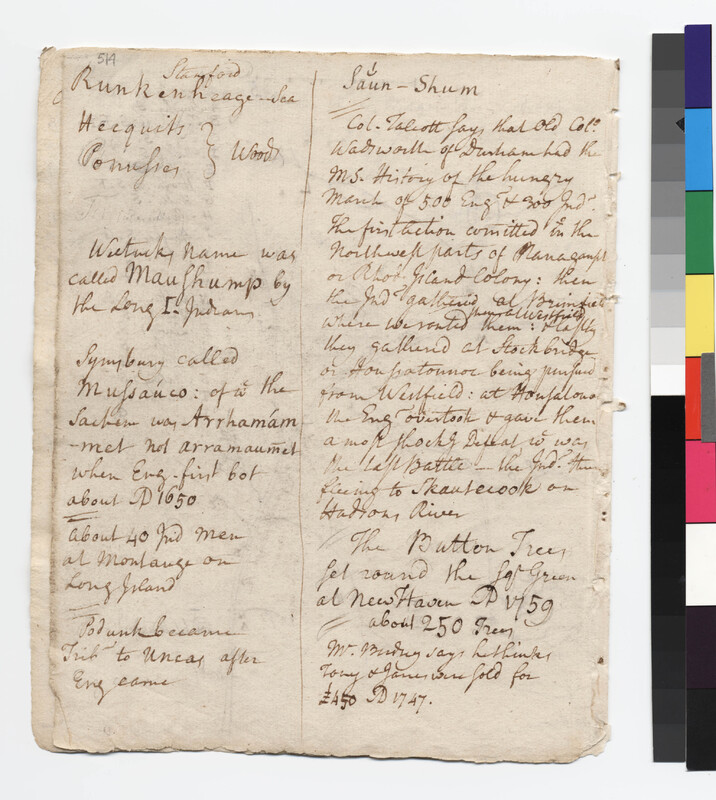 514
Stamford
Runkenheage - Sea
Heequits
Ponusses } Woods
Weetucks name was
called Maushump by
the Long I. Indians
Symsbury called
Mussauco: of wc the
Sachem was Arrhamam
-met not arramaumet
when Eng. first bot
about AD 1650
about 40 Ind men
at Montauge on
Long Island
Podunk became
Tribʸ to Uncas after
Eng came
Saun - Shum
Col. Talcott says that Old Colº
Wadsworth of Durham had the
MS. History of the hungry
March of 500 Engˢ & 300 Indˢ
The first action comitted in the
Northwest parts of Naraganset
or Rhode Island Colony: then
the Indˢ gathered at Brimfield
where we routed them: then at Westfield & lastly
they gathered at Stockbridge
or Houssatonnoc being pursued
from Westfield: at Housatonoc
the Engˢ overtook & gave them
a most shockᵍ Defeat wc was
the last Battle - the Indˢ then
fleeing to Skautecook on
Hudsons River
The Button Trees
set round the Sqʳ Green
at New Haven AD 1759
about 250 Trees
Mr. says he thinks
Tony & Janes were sold for
£450 AD 1747.